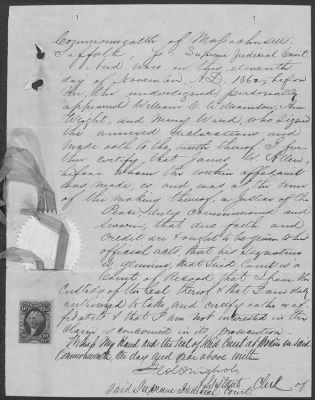 Commonwealth of Massachusetts
Suffolk, ss. Supreme Judicial Court
And now on this eleventh
day of November, A.D. 1862, before
me the undersigned, personally
appeared William C. Williamson, Ann
Wright, and Mercy Ward, who signed
the annexed declarations and
made oath to the truth thereof. I fur
ther certify, that James W. Allen,
before whom the within affidavit
was made, is and was at the time
of the making thereof, a Justice of the
Peace duly commissioned and
sworn, that due faith and
credit are & ought to be given to his
official acts, that his signature
is genuine, that this Court is a
Court of Record, that I have the
Custody of the Seal thereof & that I am duly
authorized to take and certify oaths & af
fidavits & that I am not interested in this
claim or concerned in its prosecution.
Witness My Hand and the Seal of this Court at Boston in said
Commonwealth the day and year above written
Geo. C. Nichols
Clerk of
said Supreme Judicial Court